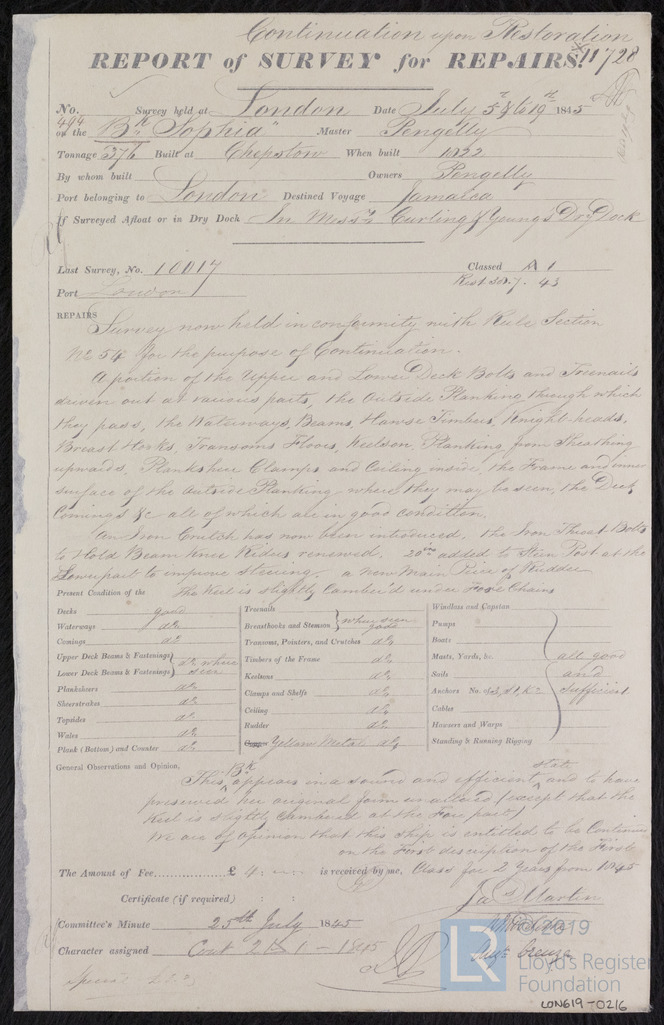 Continuation upon Restoration
REPORT of SURVEY for REPAIRS. 11728
No. 494 Survey held at London Date July 5th & 19th 1845
on the Bk "Sophia" Master Pengelly
Tonnage 376 Built at Chepstow When built 1822
By whom built Owners Pengelly
Port belonging to London Destined Voyage Jamaica
If Surveyed Afloat or in Dry Dock In Messrs Curling & Youngs Dry Dock
Last Survey, No. 10017 Classed A 1
Port London Rest 7. 43
REPAIRS Survey now held in conformity with Rule Section
No 54 for the purpose of Continuation.
A portion of the Upper and Lower Deck Bolts and Treenails
driven out at various parts, the Outside Planking through which
they pass, the Waterways, Beams, Hawse Timbers, Knight-heads,
Breast Hooks, Transoms Floors, Keelson, Planking from Sheathing
upwards, Planksheer Clamps and Ceiling inside, the Frame and inner
surface of the Outside Planking where they may be seen, the Deck
Comings &c all of which are in good condition.
An Iron Crutch has now been introduced, the Iron Throat Bolts
to Hold Beam Knee Riders renewed, 20ins added to Stern Post at the
Lowerpart to improve steering. a new Main Piece of Rudder
Present Condition of the The Keel is slightly Camber'd under Fore Chains
Decks good
Waterways do
Comings do
Upper Deck Beams & Fastenings } do where
Lower Deck Beams & Fastenings } seen
Planksheers do
Sheerstrakes do
Topsides do
Wales do
Plank (Bottom) and Counter do
Treenails } when seen
Breasthooks and Stemson } good
Transoms, Pointers, and Crutches do
Timbers of the Frame do
Keelsons do
Clamps and Shelfs do
Ceiling do
Rudder do
Copper Yellow Metal do
Windlass and Capstan
Pumps
Boats
Masts, Yards, &c. all good
Sails and
Anchors No. of 3, S1, K2 sufficient
Cables
Hawsers and Warps
Standing & Running Rigging
General Observations and Opinion,
This Bk appears in a sound and efficient state and to have
preserved her original form unaltered (except that the
Keel is slightly Cambered at the Fore part)
We are of opinion that this ship is entitled to be Continued
on the First description of the First
The Amount of Fee £ 4 is received by me, Class for 2 Years from 1845
Certificate (if required) : :
Jas Martin
Committee's Minute 25th July 1845
Character assigned Cont 1 - 1845
Special
©2019
LR
Lloyd's Register
Foundation
LON619-0216